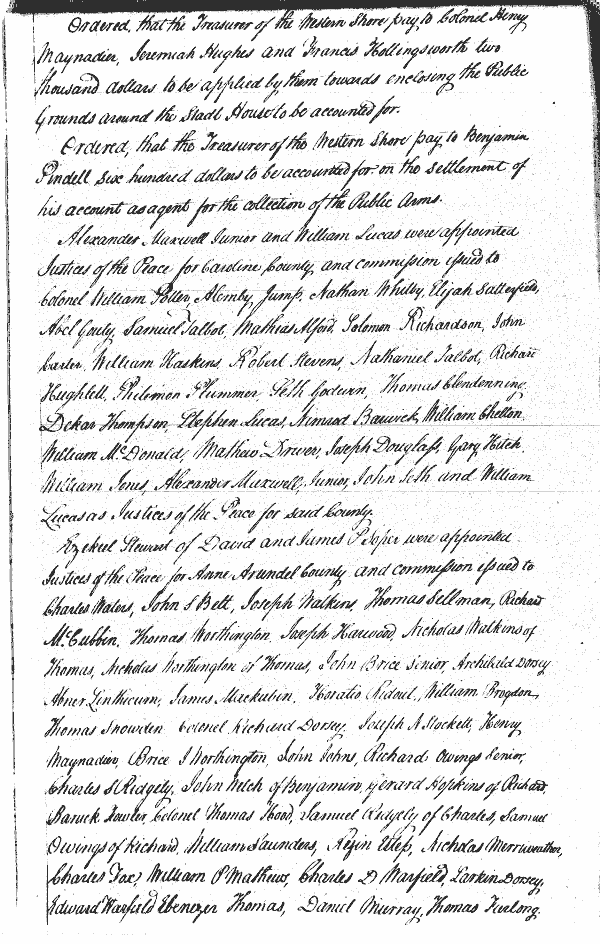 Ordered, that the Treasurer of the Western Shore pay to Colonel Henry
Maynadier, Jeremiah Hughes and Francis Hollingsworth two
thousand dollars to be applied by them towards enclosing the Public
Grounds around the Stadt House to be accounted for.
Ordered, that the Treasurer of the Western Shore pay to Benjamin
Pindell six hundred dollars to be accounted for on the settlement of
his account as agent for the collection of the Public Arms.
Alexander Maxwell Junior and William Lucas were appointed
Justices of the Peace for Caroline County, and commission issued to
Colonel William Potter, Jump, Nathan Whitby, Elijah Satterfield,
Abel Gouty, Samuel Talbot, Mathias Alford, Solomon Richardson, John
Carter, William Haskins, Robert Stevens, Nathaniel Talbot, Richard
Hughlett, Philemon Plummer, Seth Godwin, Thomas Clendenning,
Thompson, Stephen Lucas, Nimrod Barwick, William Chelton,
William McDonald, Mathew Driver, Joseph Douglass, Gary Hitch,
William Jones, Alexander Maxwell, Junior, John Seth and William
Lucas as Justices of the Peace for said County.
Ezekiel Stewart of David and James P Soper were appointed
Justices of the Peace for Anne Arundel County and commission issued to
Charles Waters, John S Belt, Joseph Watkins, Thomas Sellman, Richard
McCubbin, Thomas Worthington, Joseph Harwood, Nicholas Watkins of
Thomas, Nicholas Worthington of Thomas, John Brice Senior, Archibald Dorsey
Abner Linthicum, James Mackubin, Horatio Ridout, William Brogdon,
Thomas Snowden Colonel Richard Dorsey, Joseph N Stockett, Henry
Maynadier, Brice J Worthington, John Johns, Richard Owings Senior,
Charles S Ridgely, John Welch of Benjamin, Gerard Hopkins of Richard,
Baruck Fowler, Colonel Thomas Hood, Samuel Ridgely of Charles, Samuel
Owings of Richard, William Saunders, Rezin Estep, Nicholas Merriweather,
Charles Fox, William P Mathews, Charles D Warfield, Larkin Dorsey,
Edward Warfield Ebenezer Thomas, Daniel Murray, Thomas Furlong.